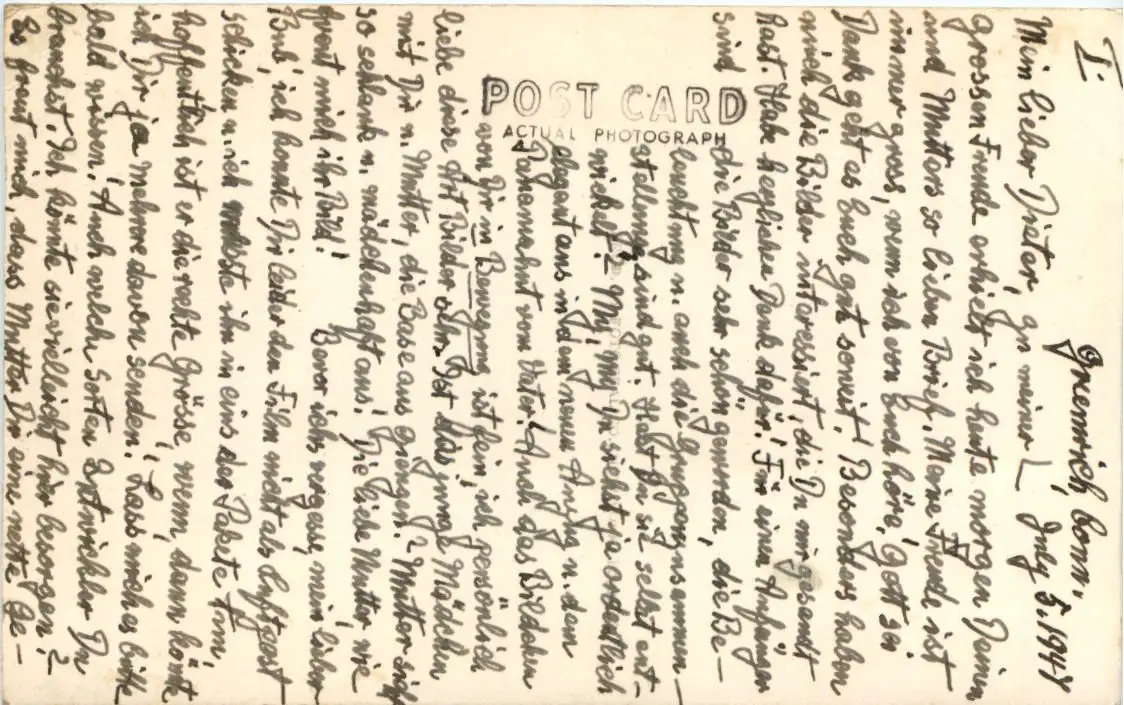 I.
Greenwich, Conn., July 5. 1948
Mein lieber Dieter, zu meiner
grossen Freude erhielt ich heute morgen Deinen
und Mutters so lieben Brief. Meine Freude ist
immer gross, wenn ich von Euch höre, Gott sei
Dank geht es Euch gut soweit! Besonders haben
mich die Bilder interessiert, die Du mir gesandt
hast. Habe herzlichen Dank dafür! Für einen Anfänger
sind die Bilder sehr schön geworden, die Be-
leuchtung u. auch die Gruppenzusammen-
stellung sind gut. Hast Du sie selbst ent-
wickelt? My, my Du siehst ja ordentlich
elegant aus in dem neuen Anzug u. dem
Panamahut vom Vater! Auch das Bildchen
von Dir in Bewegung ist fein, ich persönlich
liebe diese Art Bilder sehr. Ist das junge Mädchen
mit Dir u. Mutter, die Base aus Giengen? Mutter sieht
so schlank u. mädchenhaft aus! Die liebe Mutter, wie
freut mich ihr Bild! Bevor ichs vergesse, mein lieber
Bub, ich konnte Dir leider den Film nicht als Luftpost
schicken u. ich musste ihn in eins der Pakete tun,
hoffentlich ist er die rechte Grösse, wenn, dann könnte
ich Dir ja mehrere davon senden. Lass mich es bitte
bald wissen! Auch welch Sorten Entwickler Du
brauchst. Ich könnte sie vielleicht hier besorgen?
Es freut mich, dass Mutter Dir eine nette Ge-
POST CARD
ACTUAL PHOTOGRAPH